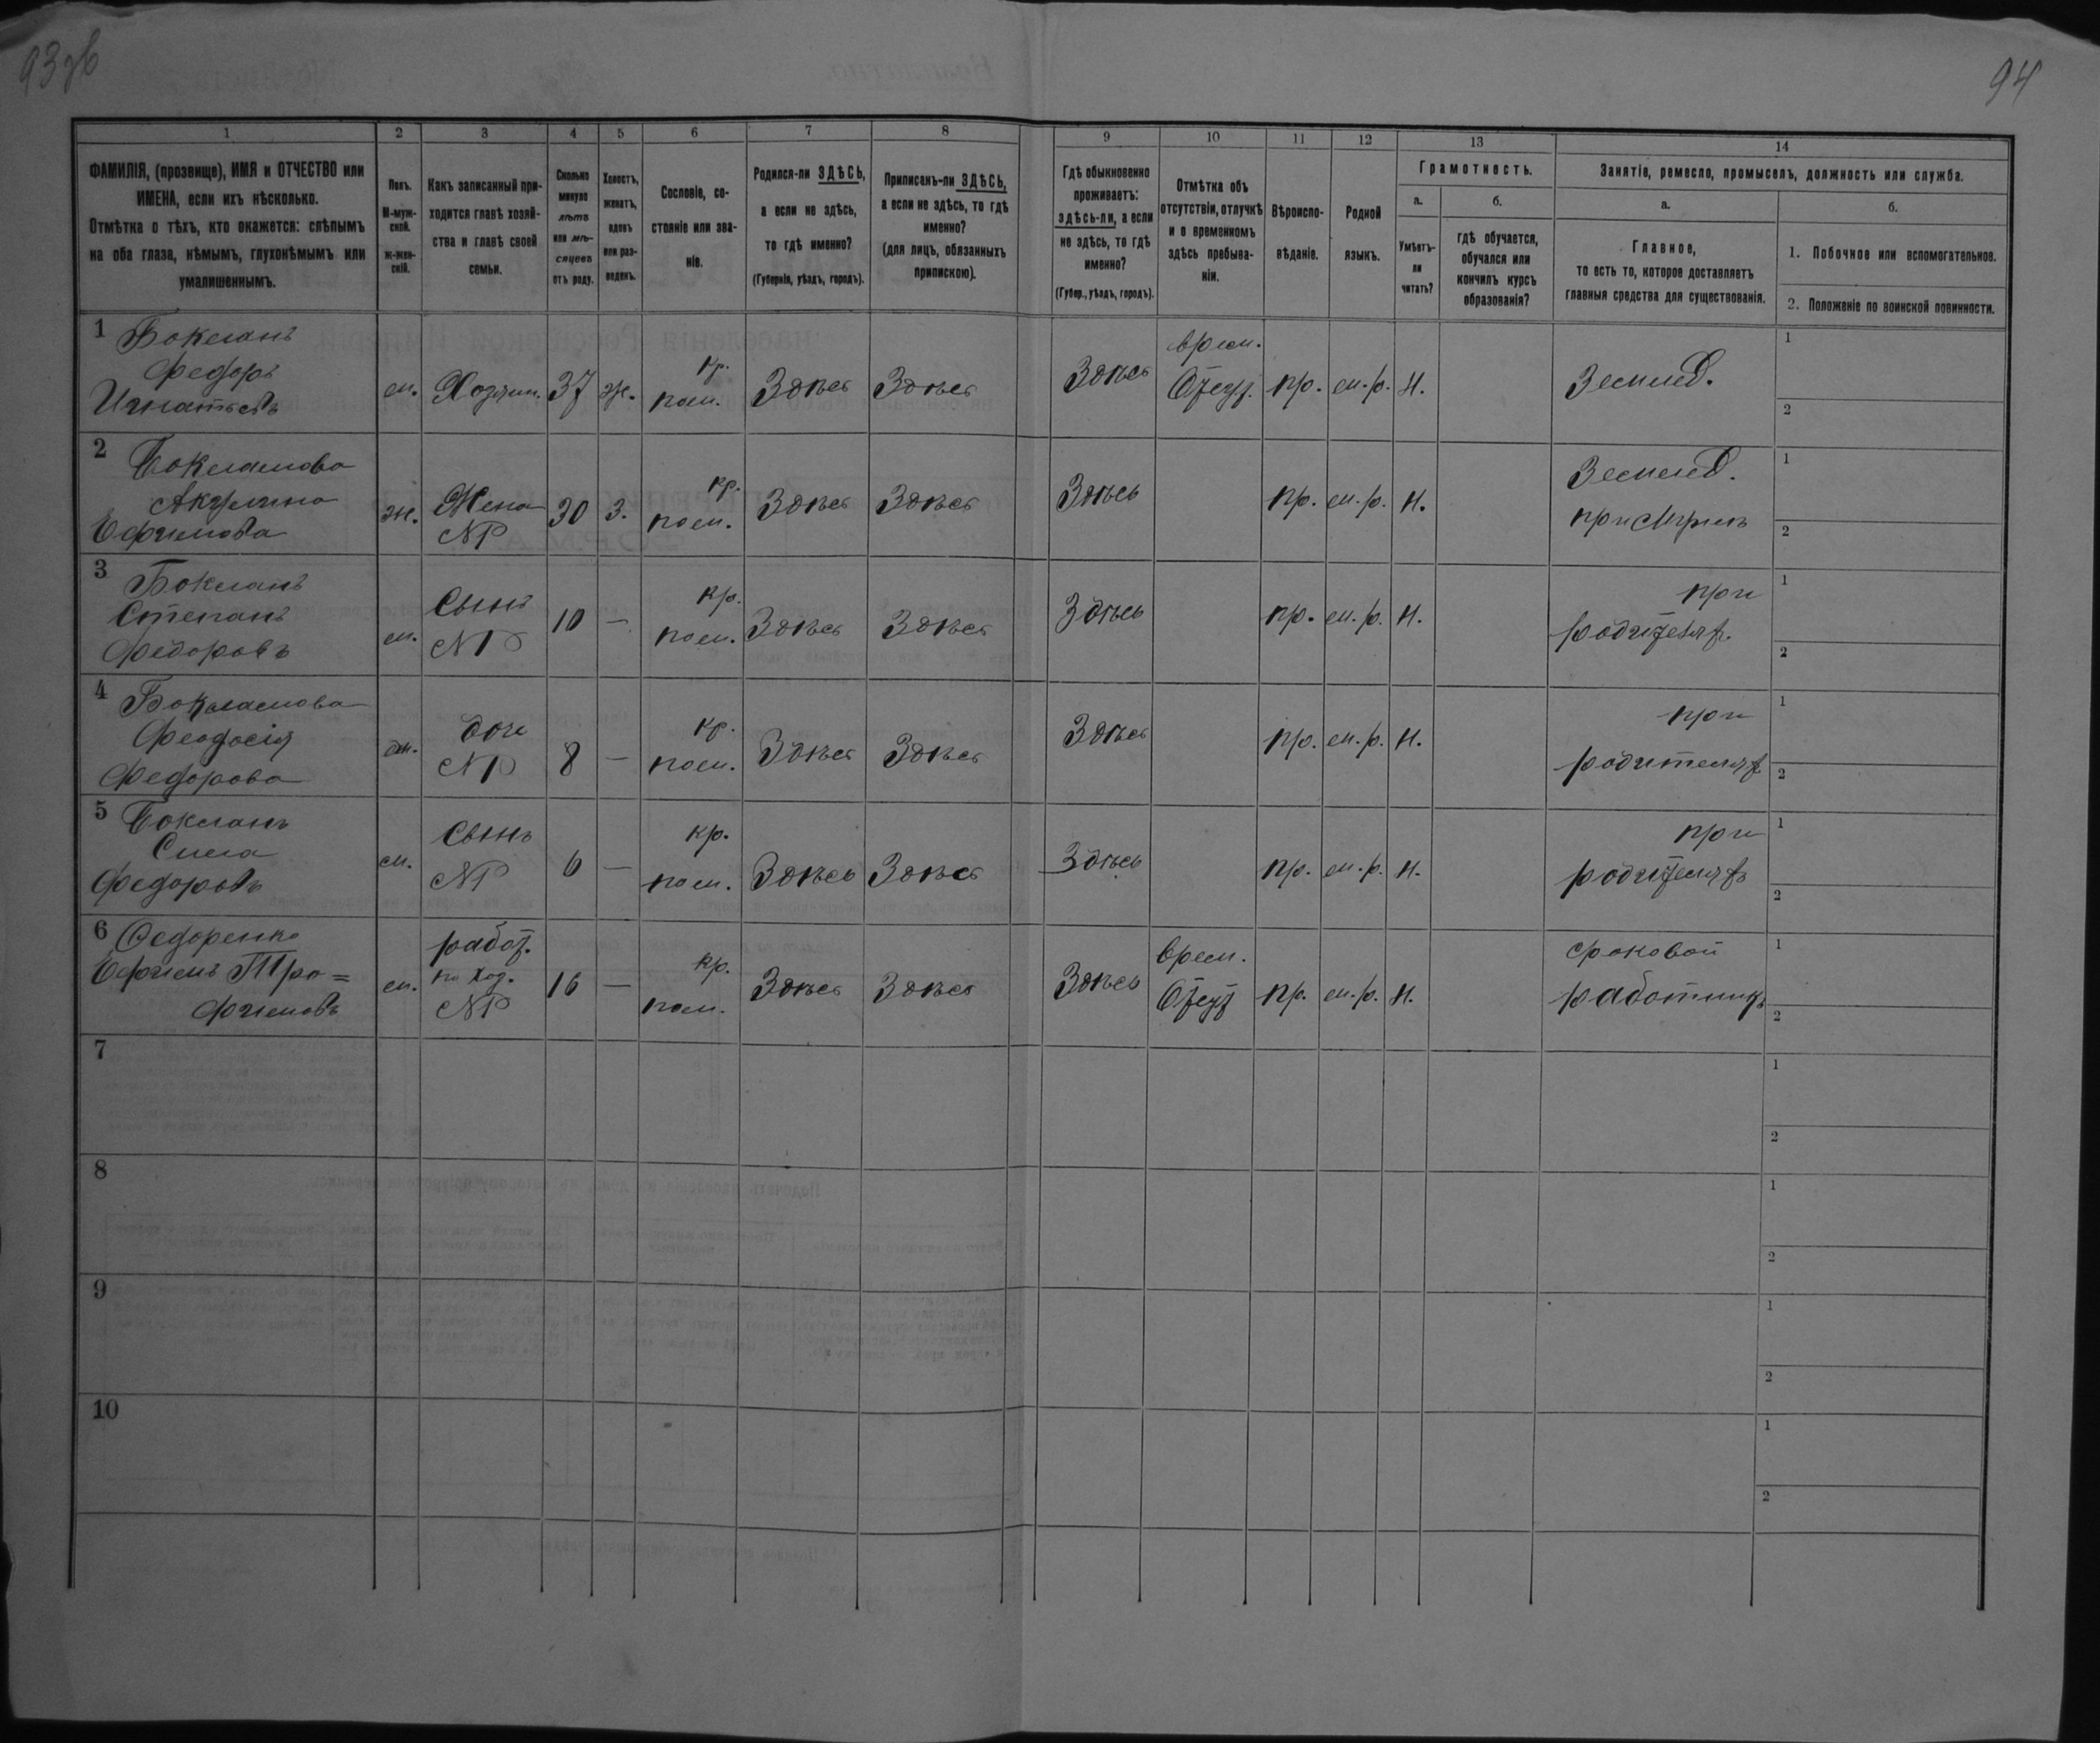 93 об
94
1
2
3
4
5
6
7
8
9
10
11
12
13
14
ФАМИЛІЯ, (прозвище), ИМЯ и ОТЧЕСТВО или
ИМЕНА, если ихъ нѣсколько.
Отмѣтка о тѣхъ, кто окажется: слѣпымъ
на оба глаза, нѣмымъ, глухонѣмымъ или
умалишеннымъ.
Полъ.
М-муж-
ской.
Ж-жен-
скій.
Какъ записанный при-
ходится главѣ хозяй-
ства и главѣ своей
семьи.
Сколько
минуло
лѣтъ
или мѣ-
сяцевъ
отъ роду.
Холостъ,
женатъ,
вдовъ
или раз-
веденъ.
Сословіе, со-
стояніе или зва-
ніе.
Родился-ли ЗДѢСЬ,
а если не здѣсь,
то гдѣ именно?
(Губернія, уѣздъ, городъ).
Приписанъ-ли ЗДѢСЬ,
а если не здѣсь, то гдѣ
именно?
(для лицъ, обязанныхъ
припискою).
Гдѣ обыкновенно
проживаетъ:
здѣсь-ли, а если
не здѣсь, то гдѣ
именно?
(Губер., уѣздъ, городъ).
Отмѣтка объ
отсутствіи, отлучкѣ
и о временномъ
здѣсь пребыва-
ніи.
Вѣроиспо-
вѣданіе.
Родной
языкъ.
Грамотность.
а.
Умѣетъ-
ли
читать?
б.
гдѣ обучается,
обучался или
кончилъ курсъ
образованія?
Занятіе, ремесло, промыселъ, должность или служба.
а.
Главное,
то есть то, которое доставляетъ
главныя средства для существованія.
б.
1. Побочное или вспомогательное.
2. Положеніе по воинской повинности.
1 Бокланъ
Федоръ
Игнатьевъ
м. Хозяин. 37 ж.
кр.
пом. Здѣсь Здѣсь Здѣсь
врем.
Отсут. пр. м.р. н. Землед.
1
2
2 Бокланова
Акулина
Ефимова
ж. Жена
№1 30 з.
кр.
пом. Здѣсь Здѣсь Здѣсь пр. м.р. н. Землед.
при мужѣ
1
2
3 Бокланъ
Степанъ
Федоровъ
м. Сынъ
№1 10 —
кр.
пом. Здѣсь Здѣсь Здѣсь пр. м.р. н. при
родителях.
1
2
4 Бокланова
Феодосія
Федорова
ж. дочь
№1 8 —
кр.
пом. Здѣсь Здѣсь Здѣсь пр. м.р. н. при
родителях
1
2
5 Бокланъ
Сила
Федоровъ
м. Сынъ
№1 6 —
кр.
пом. Здѣсь Здѣсь Здѣсь пр. м.р. н. при
родителяхъ
1
2
6 Федоренко
Ефимъ Тро=
фимовъ
м. работ.
по хоз.
№1 16 —
кр.
пом. Здѣсь Здѣсь Здѣсь
врем.
Отсут пр. м.р. н. сроковой
работникъ
1
2
7
1
2
8
1
2
9
1
2
10
1
2